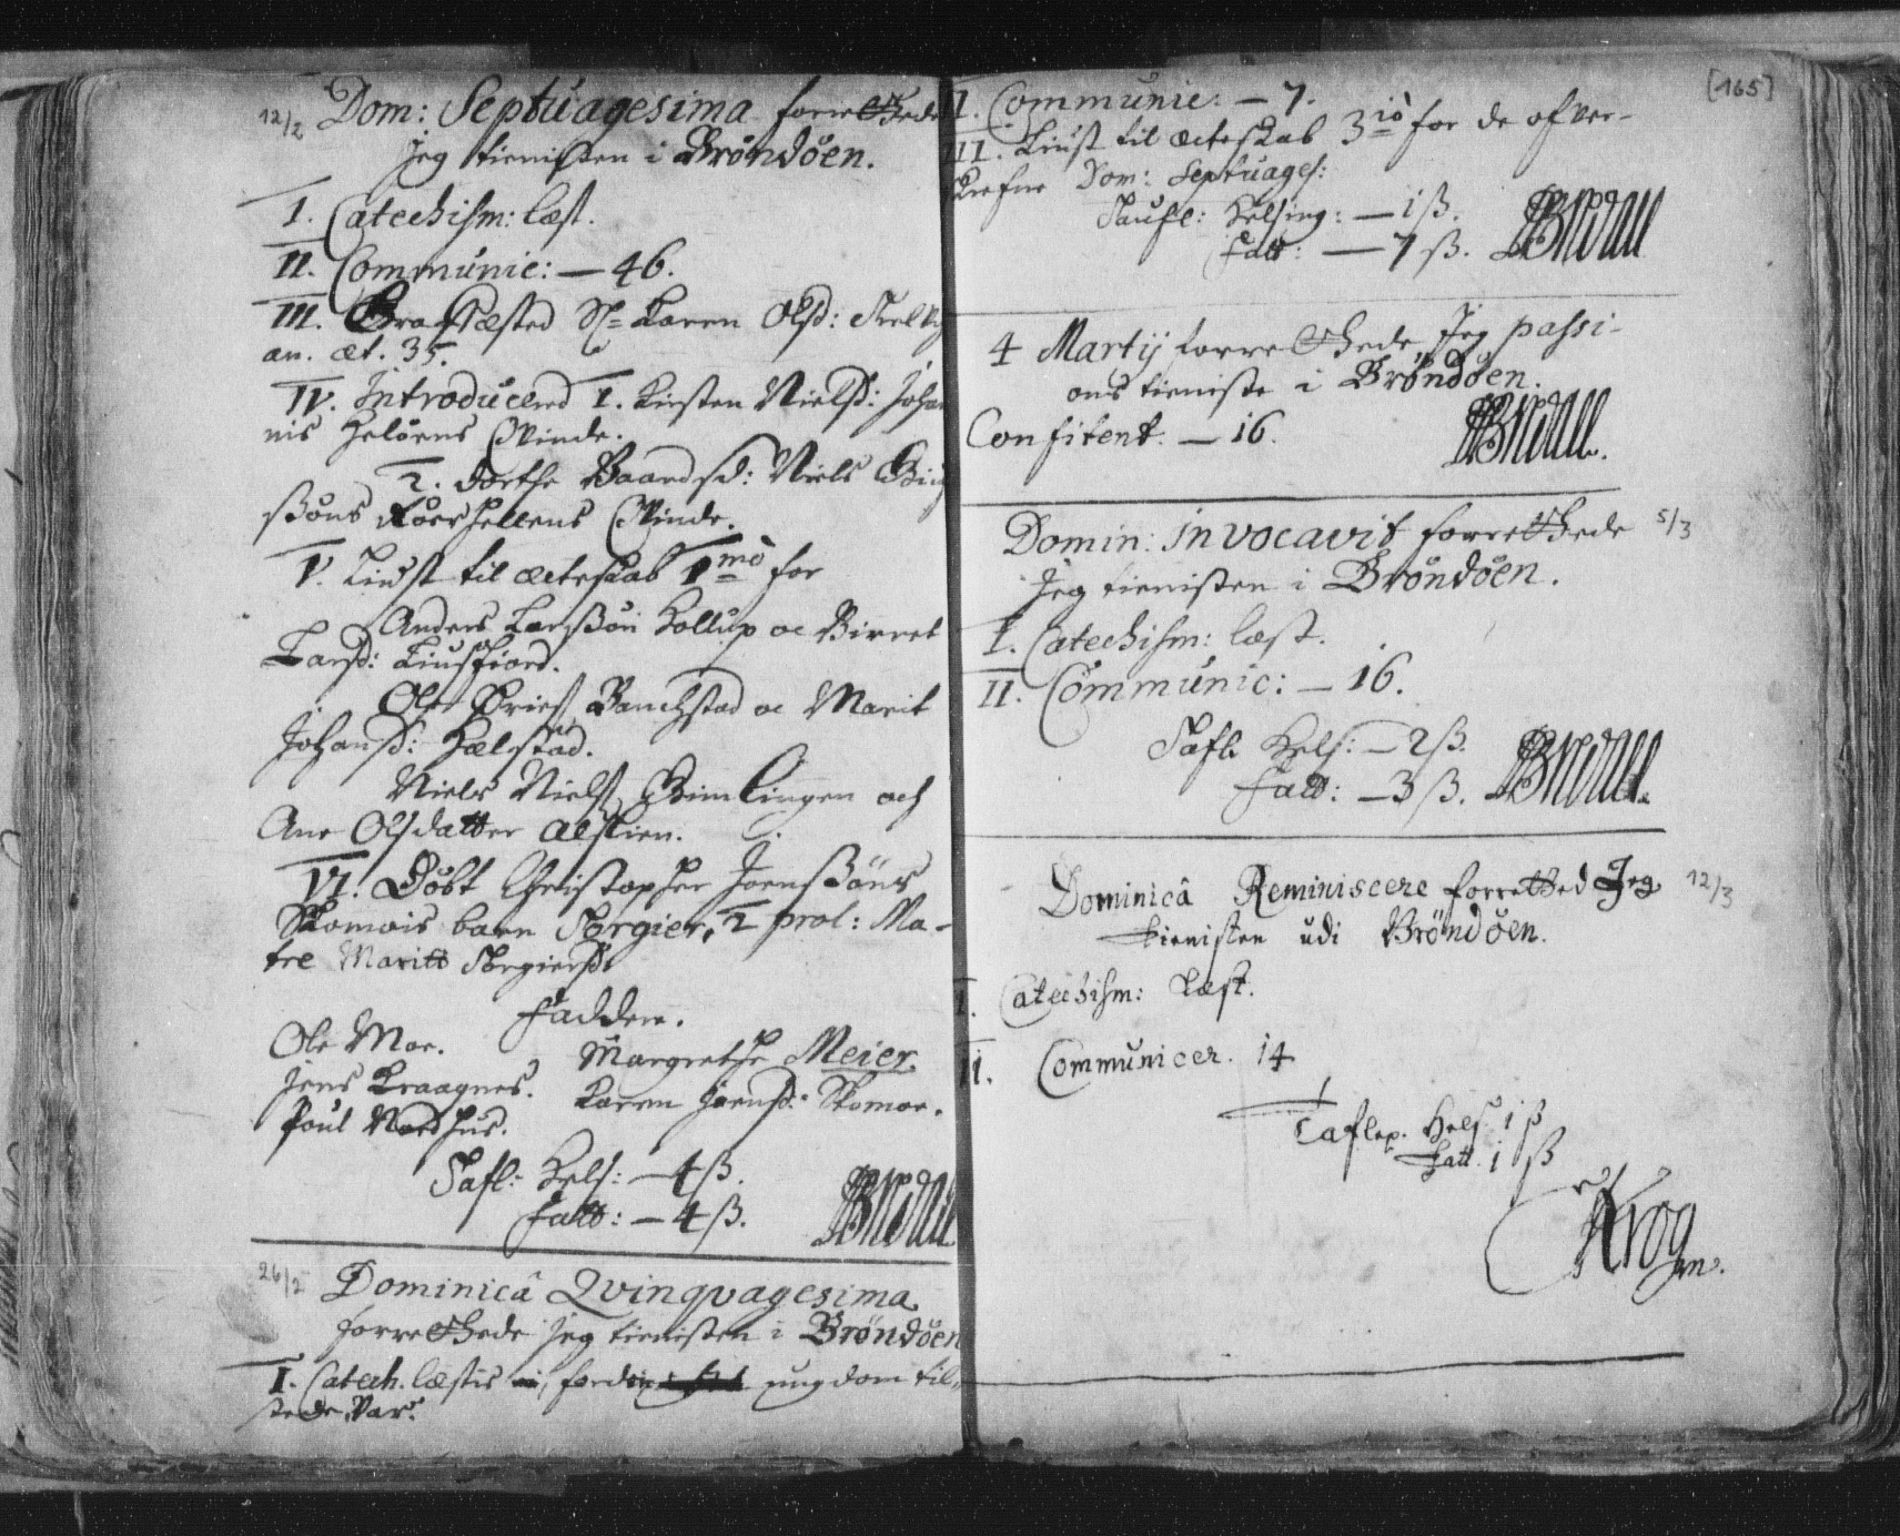 12/2 Dom: Septuagesima forrettede
Jeg tienisten i Brøndøen.
I. Catechism: læst.
II. Communic: — 46.
III. Graffæsted Sl: Karen Olsd:
an. æt. 35.
IV. Introducered 1. Kirsten Nielsd: Johan
nis Heløens Qvinde.
2. Dorthe Baardsd: Niels
Qvinde.
V. Liust til ecteskab 1mo for
Anders Larssøn Hollup oc Birret
Larsd: Liusfiord.
Ole Banchstad oc Marit
Johansd: Hælstad.
Niels Niels: och
Ane Olsdatter Alstien.
VI. Døbt Christopher Joenssøns
Skomois barn Torgier, 2 prol: Ma-
tre Maritt Torgiersd:
Fadderne.
Ole Moe. Margrethe Meier.
Jens Kraagnes. Karen Joensd: Skomoe.
Poul Nordhus.
Tafl: Hels: — 4 ß.
Fatt: — 4 ß.
26/2 Dominicâ Qvinqvagesima
forrettede Jeg tienisten i Brøndøen
I. Catech. læstis ei, fordi ungdom til-
stede var.
[165]
II. Communic: — 7.
III. Liust til ecteskab 3io for de ofver-
Dom: Septuages:
Taufl: Helsing: — 1 ß.
Fatt: — 7 ß.
4 Martij forrettede Jeg passi-
ons tieniste i Brøndøen.
Confitent. — 16.
Domin: Invocavit forrettede 5/3
Jeg tienisten i Brøndøen.
I. Catechism: læst.
II. Communic: — 16.
Tafl: Hels: — 2 ß.
Fatt: — 3 ß.
Dominicâ Reminiscere forretted Jeg 12/3
tienisten udi Brøndøen.
I. Catechism: Læst.
II. Communicer. 14
Taflep. Hels. 1 ß
Fatt. 1 ß
Krog